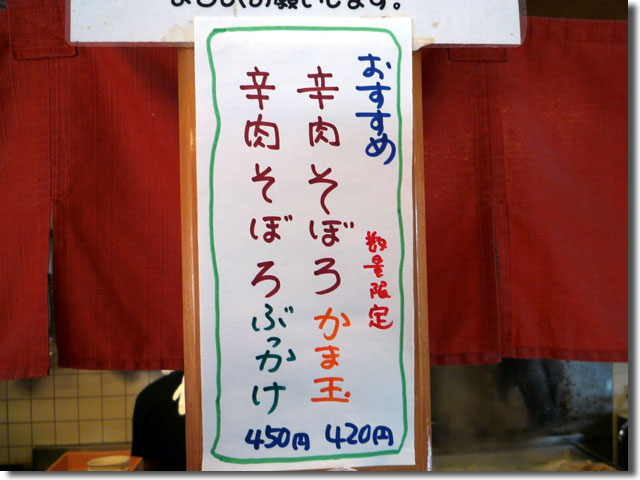 よろしくお願いします。
おすすめ
数量限定
辛肉そぼろかま玉
420円
辛肉そぼろぶっかけ
450円